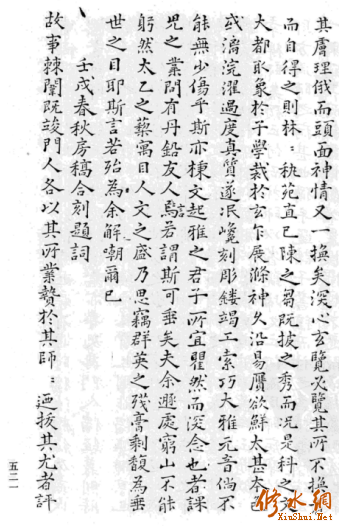 其膚理俄而頭面神情又一換矣深心玄覽必覽其所不換者
而自得之則茲秇苑直已陳之芻阮披之秀而況是科之文
大都取象於子學裁於玄乍展滌神久沿易贋欲鮮太甚本色
或漓浣濯過度真質遂泯巉刻彫鏤竭工索巧大雅元音倘不
能無少傷乎斯亦棟文起雅之君子所宜瞿然而深念也者課
兒之業間有丹鉛友人點若謂斯可垂矣夫余遯處窮山不能
躬然太乙之藜寓目人文之盛乃思竊群英之殘膏剩馥為垂
世之目耶斯言若殆為余解嘲爾已
壬戌春秋房稿合刻題詞
故事棘闈既竣門人各以其所業贄於其師二迺拔其尤者評
五二一
修水網
XiuShui.Net